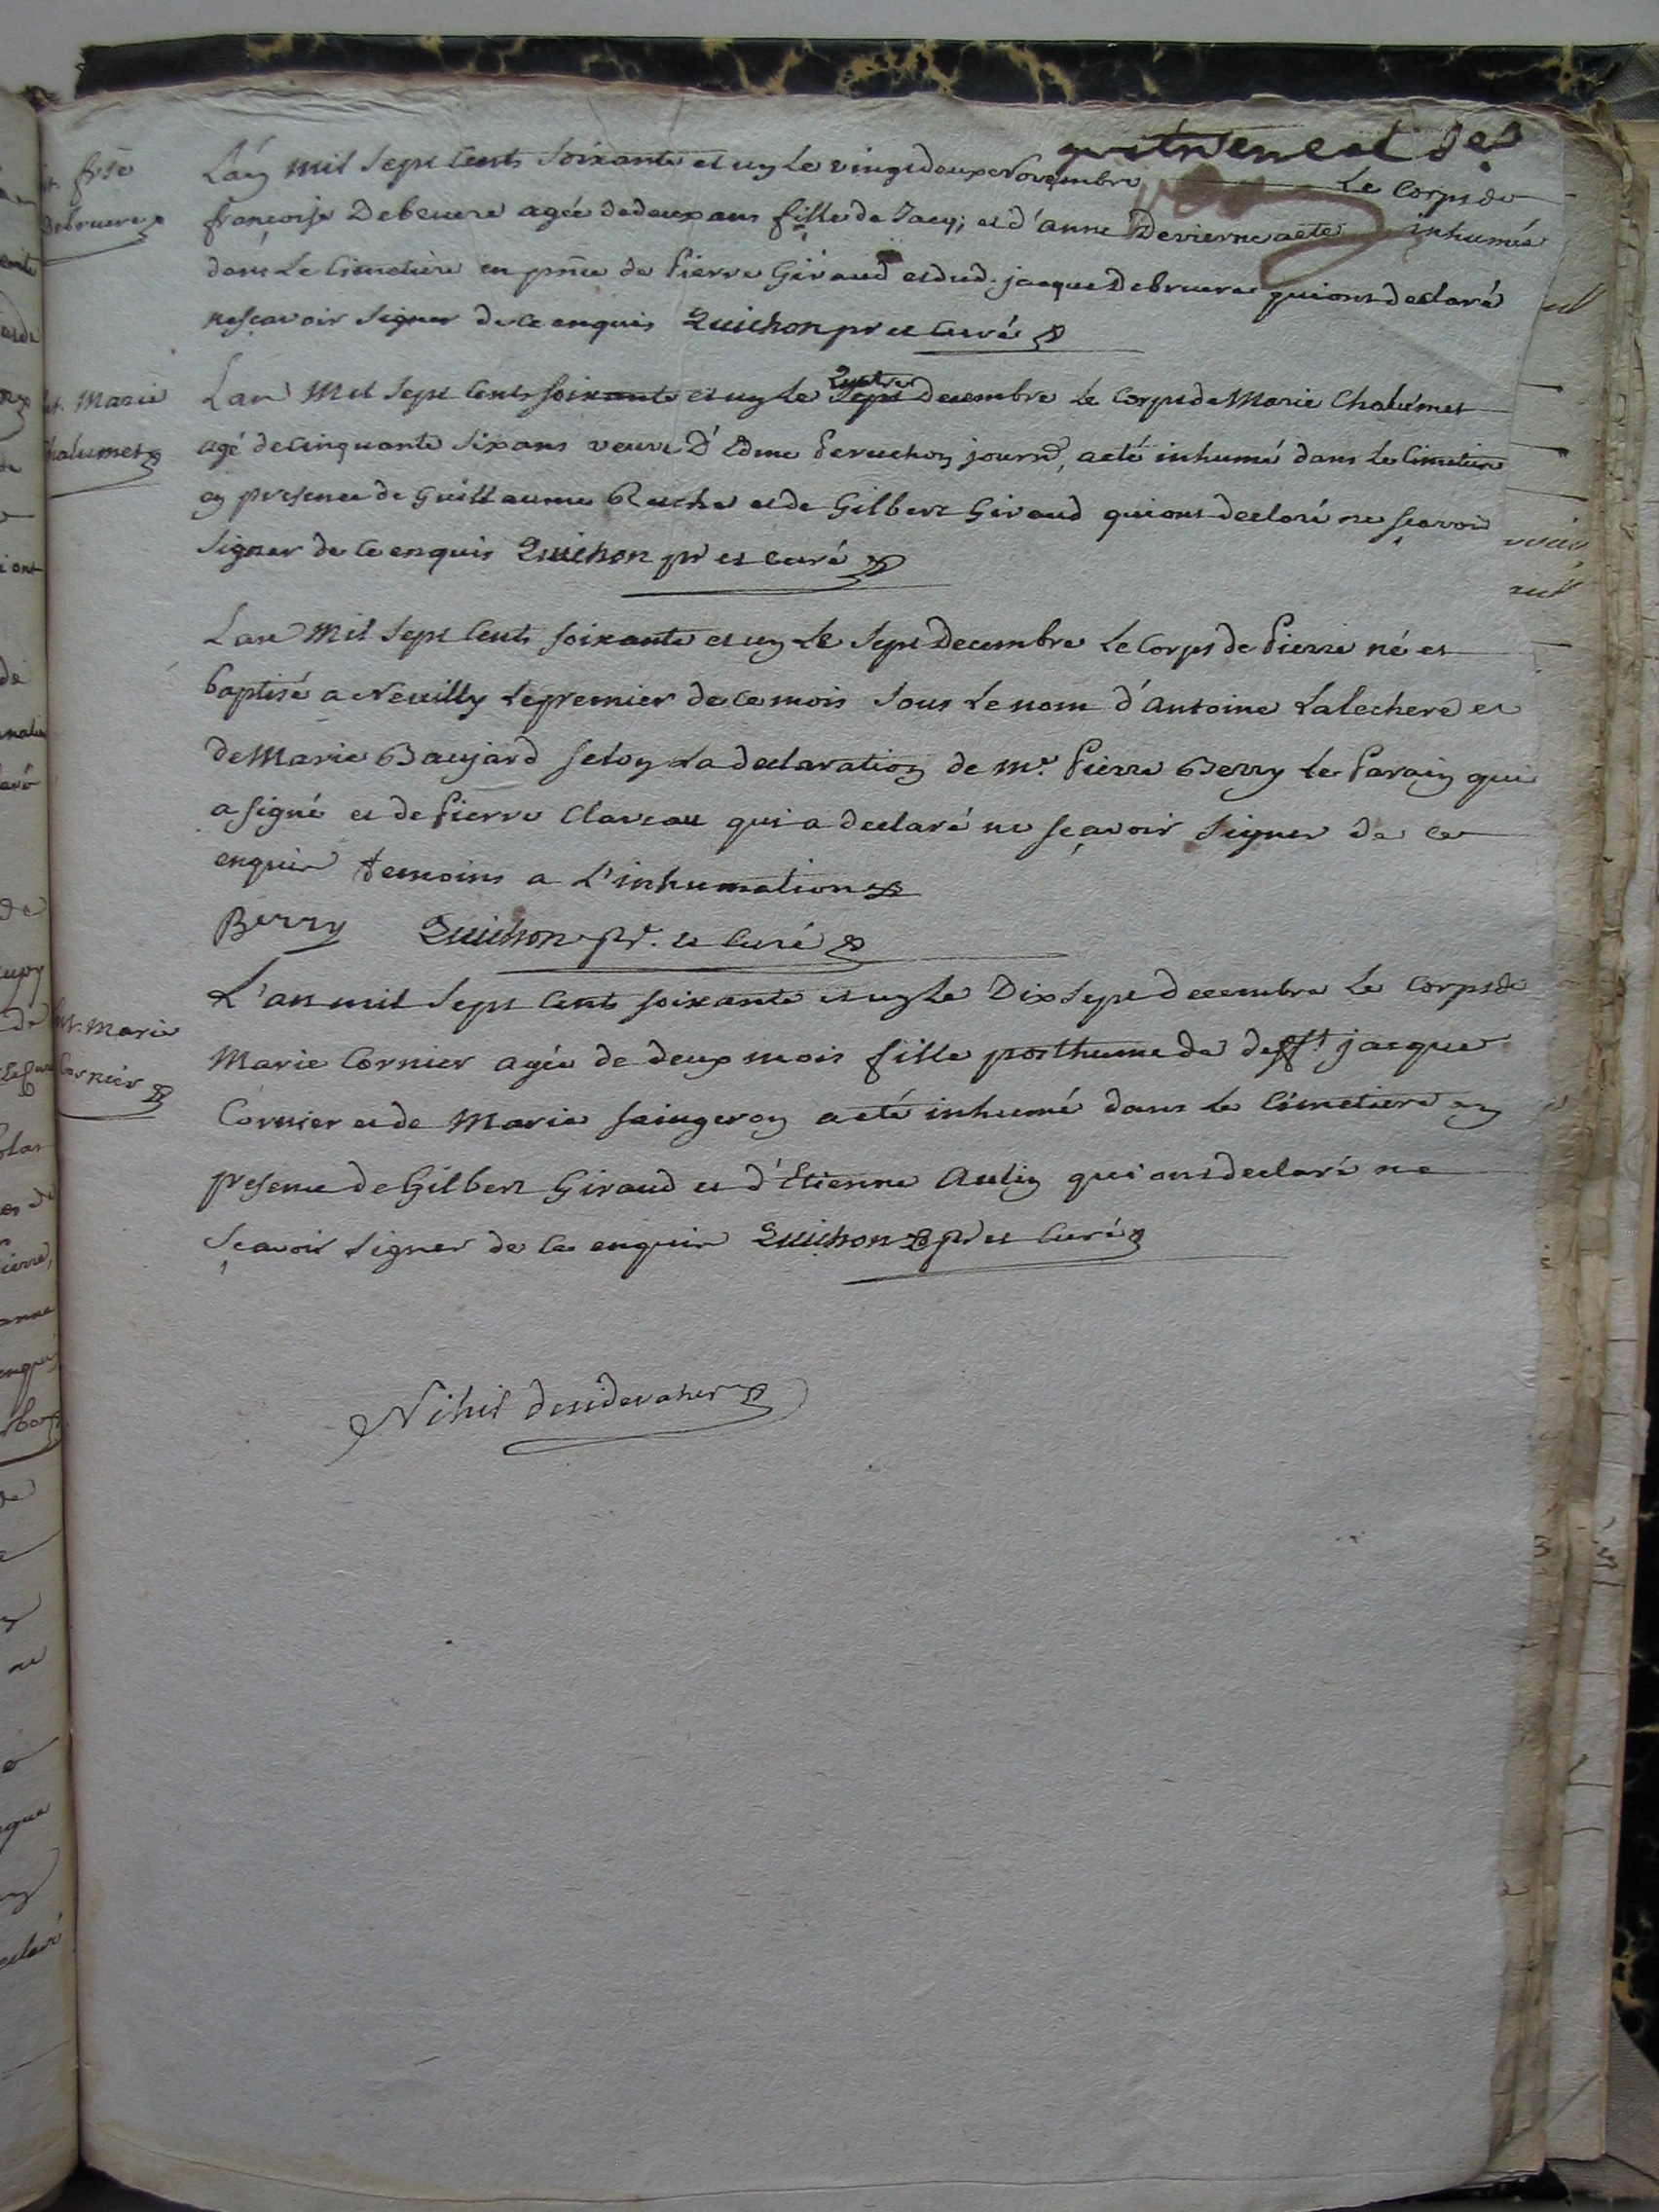 L'an mil Sept Cents Soixante et un Le vingt deux Novembre Le Corps de
françoise Debruere agée de deux ans fille de Jacq; et d'anne Devierne a eté inhumée
dans Le Cimetiere en pnce de Pierre Giraud et dud. jacque Debruere qui ont declaré
ne sçavoir Signer de ce enquis Quichon pr et Curé
int. Marie
Chalumet
L'an Mil Sept Cents soixante et un Le Quatre Decembre Le Corps de Marie Chalumet
agé de Cinquante Six ans veuve d'Edme Peruchon journr, a eté inhumé dans Le Cimetiere
en presence de Guillaume Ruche et de Gilbert Giraud qui ont declaré ne sçavoir
Signer de Ce enquis Quichon pr et curé
L'an Mil Sept Cents soixante et un Le Sept Decembre Le Corps de Pierre né et
baptisé a Neuilly Le premier de ce mois Sous Le nom d'Antoine Lalechere et
de Marie Baujard selon La declaration de Mr. Pierre Berry Le Parain qui
a signé et de Pierre Claveau qui a declaré ne sçavoir Signer de ce
enquis temoins a L'inhumation
Berry Quichon pr. et Curé
int. Marie
Cornier
L'an mil Sept Cents soixante et un Le Dix Sept decembre Le Corps de
Marie Cornier agée de deux mois fille posthume de defft jacque
Cornier et de Marie saingeron a eté inhumé dans Le Cimetiere en
presence de Gilbert Giraud et d'Etienne Aulin qui ont declaré ne
Sçavoir Signer de Ce enquis Quichon pr et Curé
Nihil desideratur